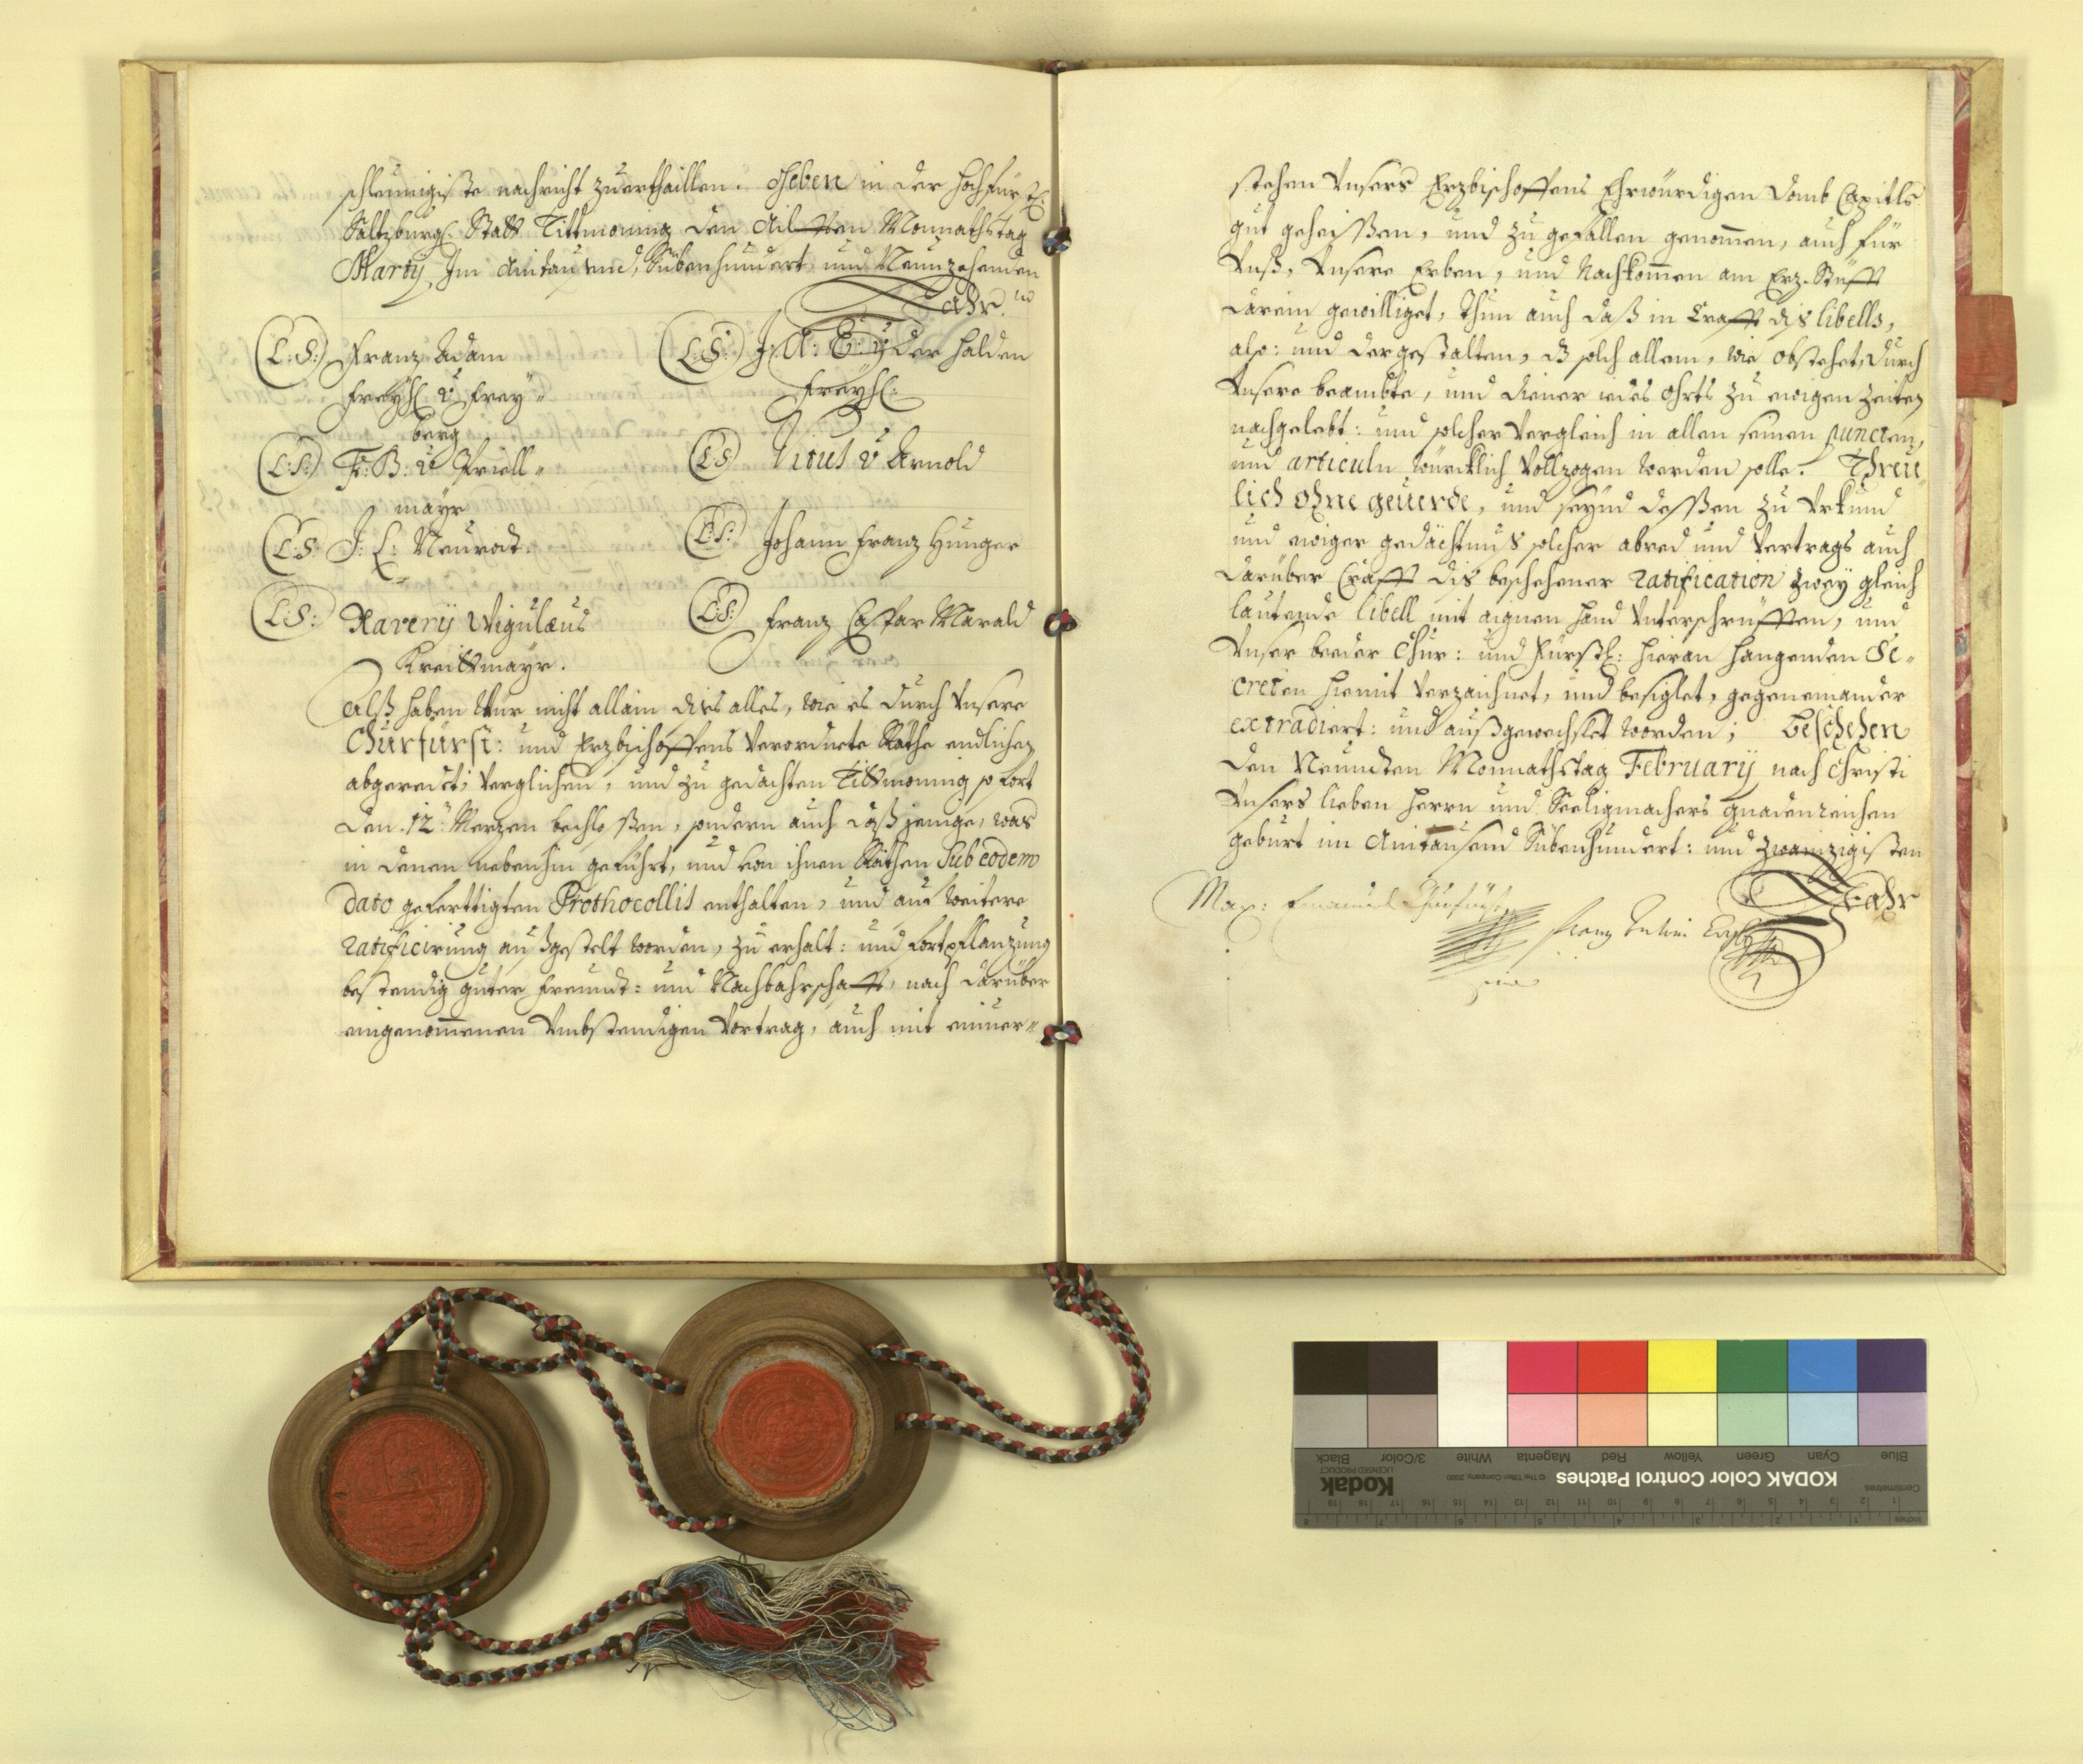 schleinigiste nachricht zuerthaillen. Geben in der Hochfürstl:
Saltzburg: Statt Tittmoning den Ailfften Monnathstag
Marty, Im Aintausend, Sübenhundert und Neunzehenden
Jahr.
(L:S:) Franz Adam
Freyh: v Frey"
berg
(L:S:) J: A: E: v: der Halden
Freyh:
(L:S:) F: B: v Prielt"
mayr
(L:S) Vitus v Arnold
(L:S: J: E: Neuradt.
(L:S:) Johann Franz Hunger
(L:S: Xavery Wigulæus
Kreittmayr.
(L:S:) Franz Caspar Marald
Alß haben Wür nicht allain dis alles, wie es durch Unsere
Churfürst: und Erzbischoffens Verordnete Räthe endlichen
abgeredet, Verglichen, und zu gedachten Tittmoning so fort
den .12: Merzen beschlossen, sondern auch daßjenige, was
in denen nebenhin geführt, und von ihnen Räthen Sub eodem
dato geferttigten Prothocollis enthalten, und auf weitere
ratificirung außgestelt worden, zu erhalt: und Fortpflanzung
bestendig guter Freundt: und Nachbahrschafft, nach darüber
eingenommenen Umbstendigen Vortrag, auch mit einver"
stehen Unsers Erzbischoffens Ehrwürdigen Domb Capitls
gut geheissen, und zu gefallen genommen, auch für
Unß, Unsere Erben, und Nachkommen am Erz-Stüfft
darein gewilliget, Thun auch daß in Crafft dis libells,
also: und dergestalten, dß solch allem, wie obstehet, durch
Unsere beambte, und Diener iedes Ohrts zu ewigen Zeiten
nachgelebt: und solcher Vergleich in allen seinen puncten,
und articuln würcklich Vollzogen werden solle. Threü"
lich ohne geuerde, und seynd dessen zu Urkund
und ewiger gedächtnus solcher abred und Vertrags auch
darüber Crafft dis beschehener ratification zwey gleich
lautende libell mit aignen Hand Unterschrüfften, und
Unser beeder Chur: und Fürstl: hieran hangenden Se"
creten hiemit Verzaichnet, und besiglet, gegeneinander
extradiert: und außgewechslet worden; Beschehen
den Neundten Monnathstag February nach Christi
Unsers lieben Herrn und Seeligmachers gnadenreichen
geburt im Aintausend Sübenhundert: und zwainzigisten
Jahr
Max: Emanuel Churfürst
Franz Antoni
KODAK Color Control Patches
Kodak
LICENSED PRODUCT
© The Tiffen Company, 2000
Blue Cyan Green Yellow Red Magenta White 3/Color Black
Centimetres
Inches